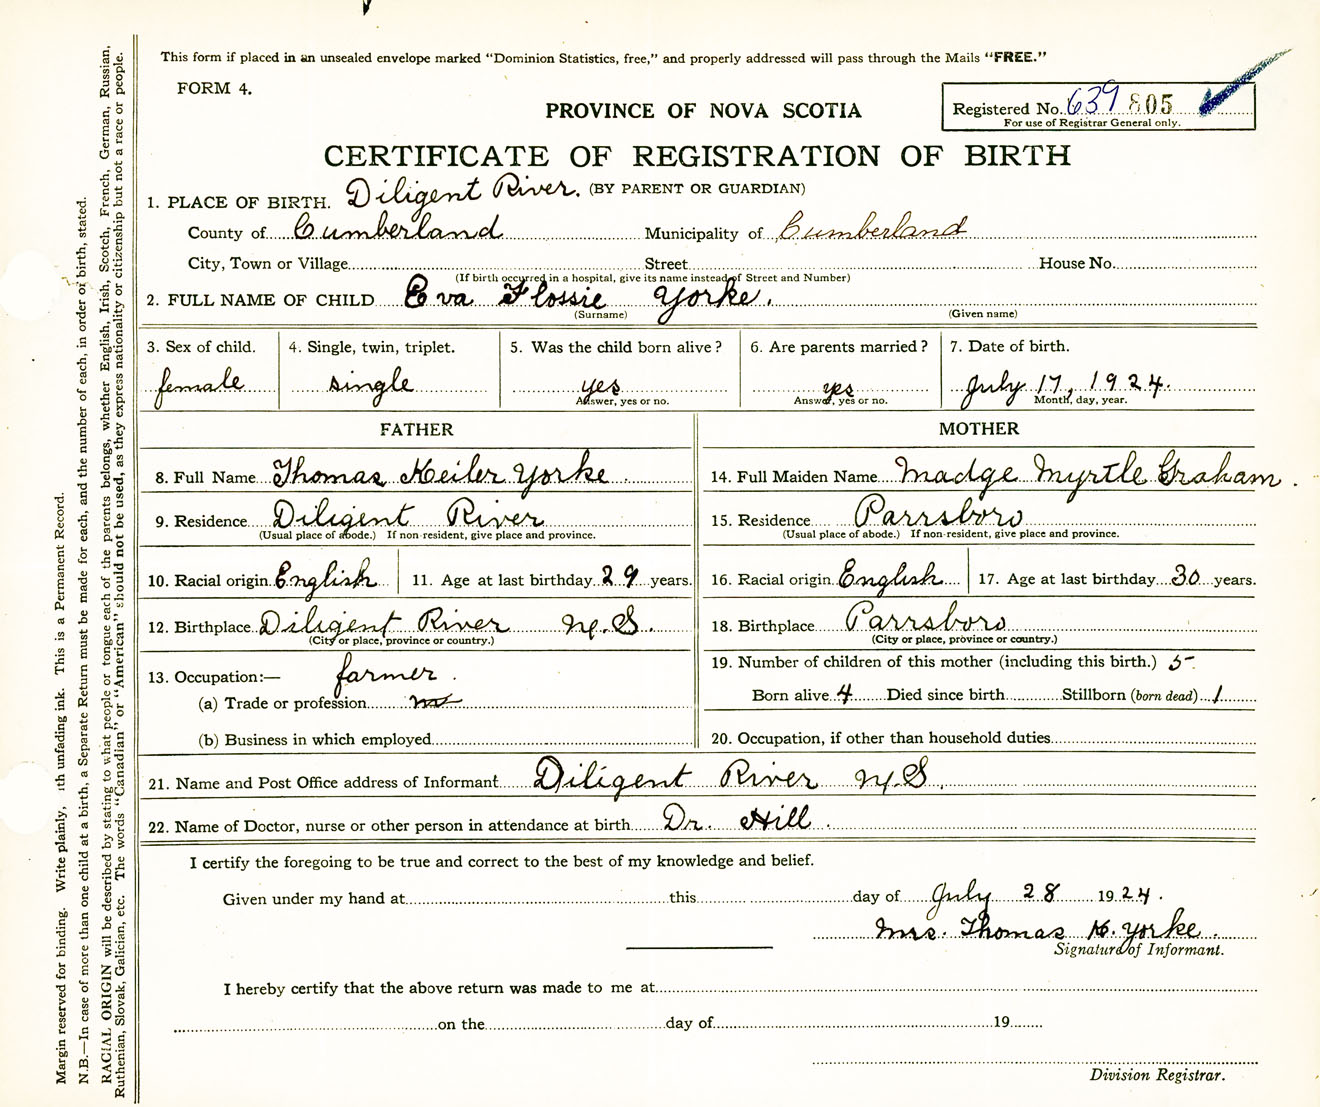 This form if placed in an unsealed envelope marked "Dominion Statistics, free," and properly addressed will pass through the Mails "FREE."
FORM 4.
PROVINCE OF NOVA SCOTIA
Registered No. 639 805
For use of Registrar General only.
CERTIFICATE OF REGISTRATION OF BIRTH
(BY PARENT OR GUARDIAN)
1. PLACE OF BIRTH. Diligent River.
County of Cumberland Municipality of Cumberland
City, Town or Village Street House No.
(If birth occurred in a hospital, give its name instead of Street and Number)
2. FULL NAME OF CHILD Eva Flossie Yorke.
(Surname) (Given name)
3. Sex of child. 4. Single, twin, triplet. 5. Was the child born alive? 6. Are parents married? 7. Date of birth.
female single yes yes July 17, 1924.
Answer, yes or no. Answer, yes or no. Month, day, year.
FATHER MOTHER
8. Full Name Thomas Keiler Yorke. 14. Full Maiden Name Madge Myrtle Graham.
9. Residence Diligent River 15. Residence Parrsboro
(Usual place of abode.) If non-resident, give place and province. (Usual place of abode.) If non-resident, give place and province.
10. Racial origin English 11. Age at last birthday 29 years. 16. Racial origin English 17. Age at last birthday 30 years.
12. Birthplace Diligent River N.S. 18. Birthplace Parrsboro
(City or place, province or country.) (City or place, province or country.)
13. Occupation:— farmer. 19. Number of children of this mother (including this birth.) 5-
(a) Trade or profession Born alive 4 Died since birth Stillborn (born dead) 1
(b) Business in which employed 20. Occupation, if other than household duties
21. Name and Post Office address of Informant Diligent River N.S.
22. Name of Doctor, nurse or other person in attendance at birth Dr. Hill.
I certify the foregoing to be true and correct to the best of my knowledge and belief.
Given under my hand at this day of July 28 1924.
Mrs. Thomas K. Yorke.
Signature of Informant.
I hereby certify that the above return was made to me at
on the day of 19
Division Registrar.
Margin reserved for binding. Write plainly, ith unfading ink. This is a Permanent Record.
N.B.—In case of more than one child at a birth, a Separate Return must be made for each, and the number of each, in order of birth, stated.
RACIAL ORIGIN will be described by stating to what people or tongue each of the parents belongs, whether English, Irish, Scotch, French, German, Russian,
Ruthenian, Slovak, Galician, etc. The words "Canadian" or "American" should not be used, as they express nationality or citizenship but not a race or people.